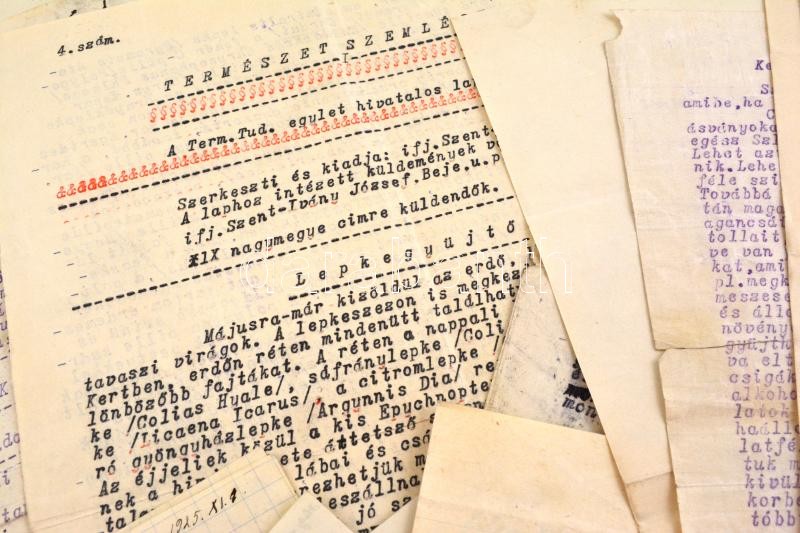 4.szám.
TERMÉSZET SZEMLÉ
§§§§§§§§§§§§§§§§§§§§§§§§§§§§
A Term.Tud. egylet hivatalos la
&&&&&&&&&&&&&&&&&&&&&&&&&&&&&&&&&&&&
Szerkeszti és kiadja: ifj.Szent-
A laphoz intézett küldemények
ifj.Szent-Ivány József.Beje.u.p
XIX nagymegye cimre küldendők.
Lepkegyujtő
Májusra-már kizöldül az erdő,
tavaszi virágok. A lepkeszezon is megkez
Kertben, erdőn réten mindenütt találhat
lönbözőbb fajtákat. A réten a nappali
ke /Colias Hyale/, sáfránylepke /Coli
ke /Licaena Icarus/, a citromlepke /
ró gyöngyházlepke /Argynnis Dia/ re
Az éjjeliek közül a kis Epychnopte
nek a hi ete áttetsző
tale lábai és csá
rezhetjük m
eszállna
jó sz
1925.XI.1.
mon
Ke
amihe,ha
ásványoka
egész Szl
Lehet az
nik.Lehe
féle szi
Továbbá
tán maga
agancsái
tollait
ve van
kat,ami
pl.megk
meszese
és álla
növény
gyüjth
va elt
csigák
alkoho
latok
haálle
latfé
tuk m
kivül
korbe
többi